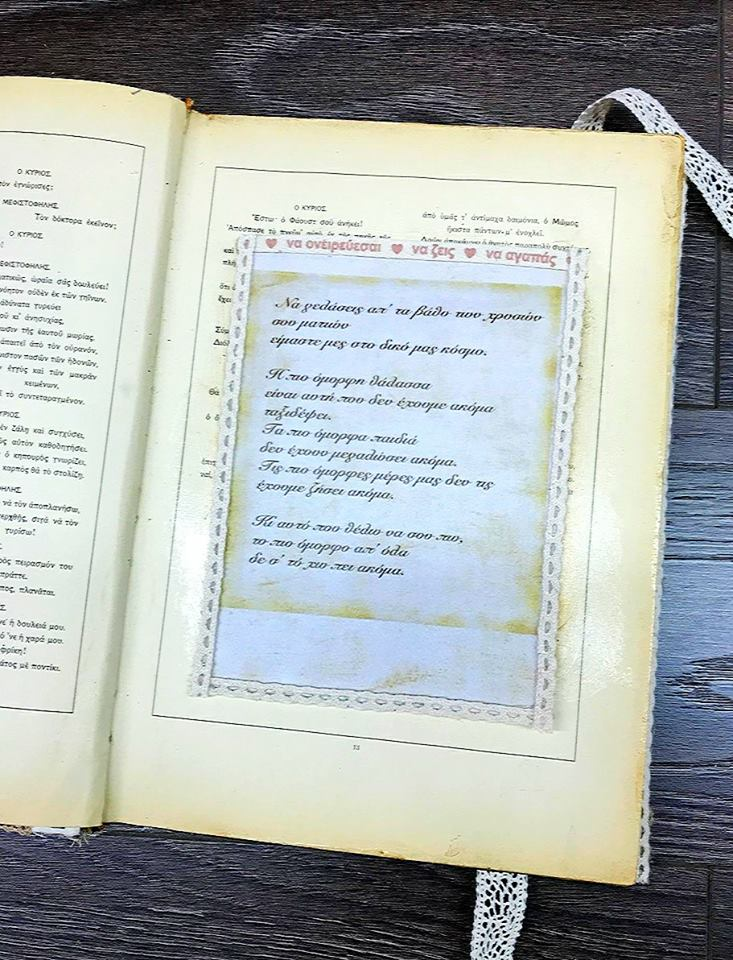 Ο ΚΥΡΙΟΣ
τὸν ἐγνώρισες;
ΜΕΦΙΣΤΟΦΗΛΗΣ
Τὸν δόκτορα ἐκεῖνον;
Ο ΚΥΡΙΟΣ
ΕΦΙΣΤΟΦΗΛΗΣ
ὡραῖα σᾶς δουλεύει!
οὐδὲν ἐκ τῶν γηΐνων.
ἀδύνατα γυρεύει
οῦ κι' ἀνησυχίας,
ωσιν τῆς ἑαυτοῦ μωρίας.
ἀπαιτεῖ ἀπὸ τὸν οὐρανόν,
ιστον πασῶν τῶν ἡδονῶν,
ἐγγὺς καὶ τῶν μακρὰν
κειμένων,
ῖ τὸ συντεταραγμένον.
ΥΡΙΟΣ
ἐν ζάλῃ καὶ συγχύσει,
ὺς αὐτὸν καθοδηγήσει.
ὁ κηπουρὸς γνωρίζει,
καρπὸς θὰ τὸ στολίζῃ.
ΗΛΗΣ
νὰ τὸν ἀποπλανήσω,
σιγὰ νὰ τὸν
γυρίσω!
ὸς πειρασμόν του
πράττε.
πος, πλανᾶται.
ἡ δουλειά μου.
ὁ 'νε ἡ χαρά μου.
άτος μὲ ποντίκι.
Ο ΚΥΡΙΟΣ
Ἔστω· ὁ Φάουστ σοῦ ἀνήκει!
Ἀπόσπασε τὸ
ἀπὸ ὑμᾶς τ' ἀντίμαχα δαιμόνια, ὁ Μῶμος
ἥκιστα πάντων μ' ἐνοχλεῖ.
να ονειρεύεσαι να ζεις να αγαπάς
Να γελάσεις απ' τα βάθο των χρυσών
σου ματιών
είμαστε μες στο δικό μας κόσμο.
Η πιο όμορφη θάλασσα
είναι αυτή που δεν έχουμε ακόμα
ταξιδέψει.
Τα πιο όμορφα παιδιά
δεν έχουν μεγαλώσει ακόμα.
Τις πιο όμορφες μέρες μας δεν τις
έχουμε ζήσει ακόμα.
Κι αυτό που θέλω να σου πω,
το πιο όμορφο απ' όλα
δε σ' τό χω πει ακόμα.